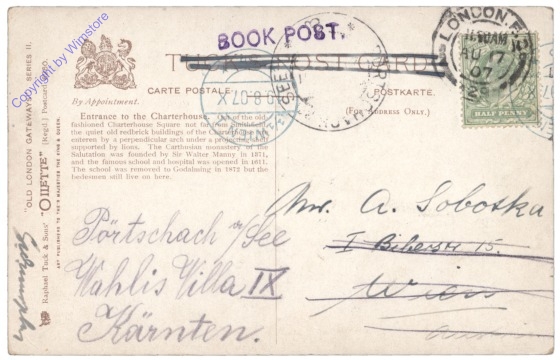 BOOK POST.
TUCK'S POST CARD
CARTE POSTALE
POSTKARTE.
By Appointment.
(FOR ADDRESS ONLY.)
Entrance to the Charterhouse of the old
fashioned Charterhouse Square not far from Smithfield
the quiet old redbrick buildings of the Charterhouse
entered by a perpendicular arch under a projecting
supported by lions. The Carthusian monastery of the
Salutation was founded by Sir Walter Manny in 1371,
and the famous school and hospital was opened in 1611.
The school was removed to Godalming in 1872 but the
bedesmen still live on here.
"OLD LONDON GATEWAYS" SERIES II.
Raphael Tuck & Sons' "OILETTE" [Regd.] Postcard
ART PUBLISHERS TO THEIR MAJESTIES THE KING & QUEEN.
LONDON. E.C.
AU 17
07
HALF PENNY
20.8.07.X
Mr. A. Soboska
I Biberstr 15.
Wien
Austria
Pörtschach a/See
Wahlis Villa IX
Kärnten.
Copyright by Winstore